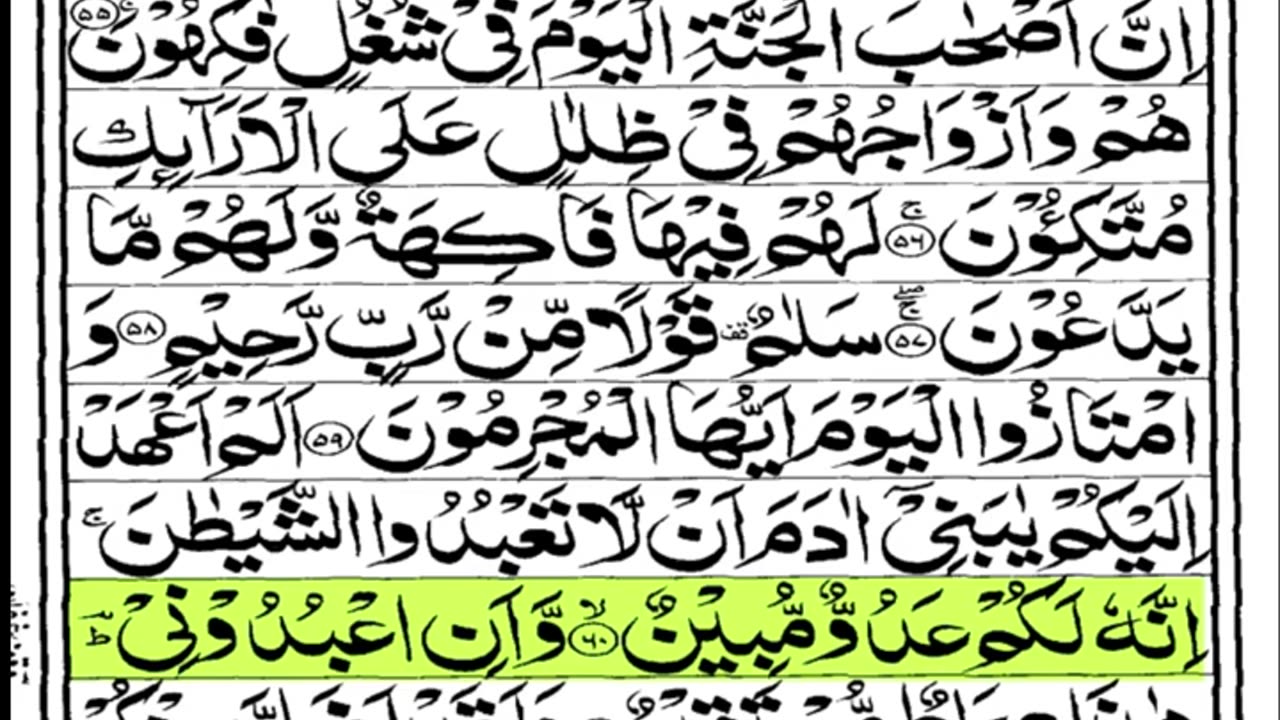 اِنَّ اَصْحٰبَ الْجَنَّةِ الْيَوْمَ فِيْ شُغُلٍ فٰكِهُوْنَ ۵۵
هُمْ وَاَزْوَاجُهُمْ فِيْ ظِلٰلٍ عَلَى الْاَرَآئِكِ
مُتَّكِـُٔوْنَ ۵۶ ج لَهُمْ فِيْهَا فَاكِهَةٌ وَّلَهُمْ مَّا
يَدَّعُوْنَ ۵۷ صلے ج سَلٰمٌ قف قَوْلًا مِّنْ رَّبٍّ رَّحِيْمٍ ۵۸ وَ
امْتَازُوا الْيَوْمَ اَيُّهَا الْمُجْرِمُوْنَ ۵۹ اَلَمْ اَعْهَدْ
اِلَيْكُمْ يٰبَنِيْٓ اٰدَمَ اَنْ لَّا تَعْبُدُوا الشَّيْطٰنَ ج
اِنَّهٗ لَكُمْ عَدُوٌّ مُّبِيْنٌ ۶۰ لا وَّاَنِ اعْبُدُوْنِيْ ط